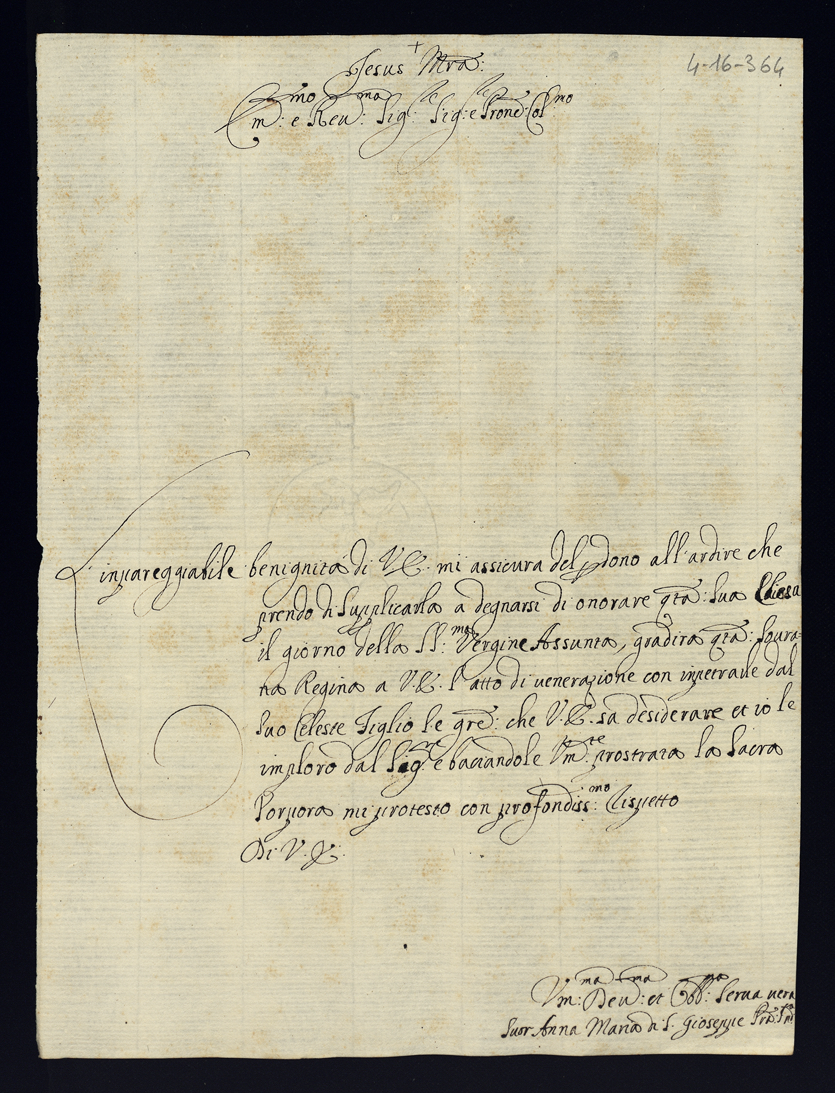 4-16-364
+
Jesus Mra:
Em:mo e Reu:ma Sig:re Sig:re e Prone Col:mo
L'inpareggiabile benignita di V.E. mi assicura del pdono all'ardire che
prendo di Supplicarla a degnarsi di onorare qta: sua Chiesa
il giorno della SS:ma Vergine Assunta, gradira qta: soura=
na Regina a V.E. l'atto di uenerazione con inpetrarle dal
suo Celeste Figlio le gre: che V.E. sa desiderare et io le
imploro dal Sig:re e baciandole Vm:te prostrata la Sacra
Porpora mi protesto con profondiss:mo Rispetto
Di V.E.
Vm:ma Deu:ma et Obb:ma Serua uera
Suor Anna Maria di S. Gioseppe